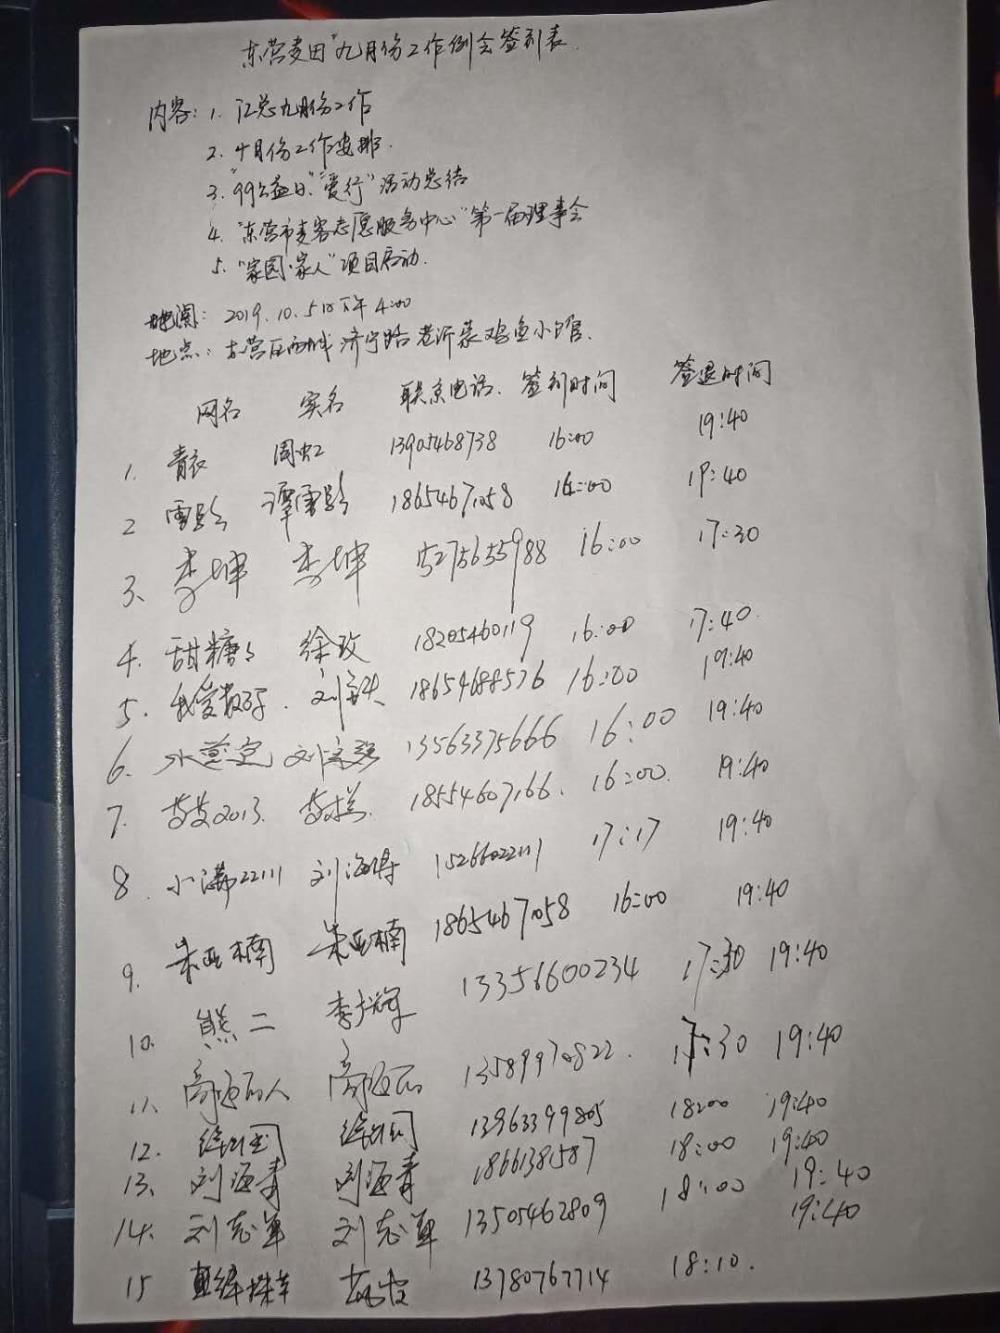 东营麦田"九月份工作例会签到表
内容: 1. 汇总九月份工作
2. 十月份工作安排.
3. "99公益日""爱行"活动总结
4. "东营市麦客志愿服务中心"第一届理事会
5. "家园·家人"项目启动.
时间: 2019.10.5日下午4:00
地点: 东营区西城济宁路老沂蒙鸡鱼小馆.
网名 实名 联系电话. 签到时间 签退时间
1. 青衣 周虹 13905468738 16:00 19:40
2 雪玲 谭雪玲 18654671058 16:00 19:40
3、 李坤 李坤 15275655988 16:00 17:30
4. 甜糖 徐玫 18205460119 16:00 17:40.
5. 我爱 刘 18654688576 16:00 19:40
6. 水 刘 13563375666 16:00 19:40
7. 2013. 18554607166. 16:00. 19:40
8. 小满22111 刘海 15266022111 17:17 19:40
9. 朱亚楠 朱亚楠 18654671058 16:00 19:40
10. 熊二 李 13356600234 17:30 19:40
11. 高 人 高 13589970822. 17:30 19:40
12. 徐 徐 13963399805 18:00 19:40
13、 刘海青 刘海青 1866138587 18:00 19:40
14. 刘志军 刘志军 13505462809 18:00 19:40
15 13780767714 18:10. 19:40